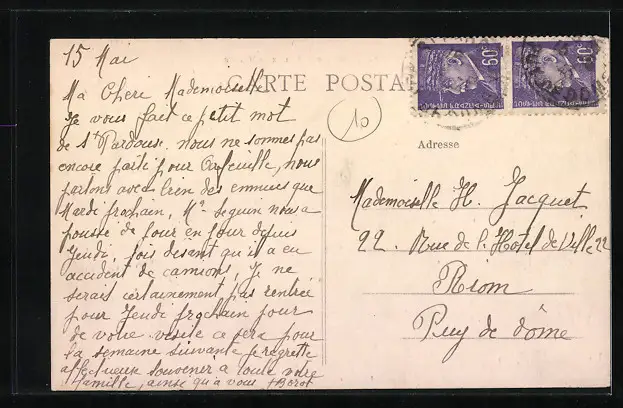 15 Mai
CARTE POSTA
Ma Chere Mademoiselle
Je vous fait ce petit mot
de St Pardoux, nous ne sommes pas
encore parti pour nous
partons avec bien des ennuies que
Mardi prochain, Mr Seguin nous a
poussé de jour en jour depuis
Jeudi, fois disant qu'il a eu
accident de camions, Je ne
serais certainement pas rentrée
pour Jeudi prochain pour
de votre visite ce sera pour
la semaine suivante je regrette
affectueux souvenir a toute votre
famille, ainsi qu'a vous
10
Adresse
Mademoiselle H. Jacquet
22. Rue de l'Hotel de Ville 22
Riom
Puy de dôme
60
60